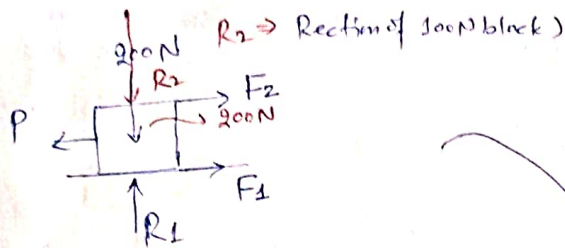 200N R2 ⇒ Rection of 100N block)
R2
F2
200N
P
F1
R1